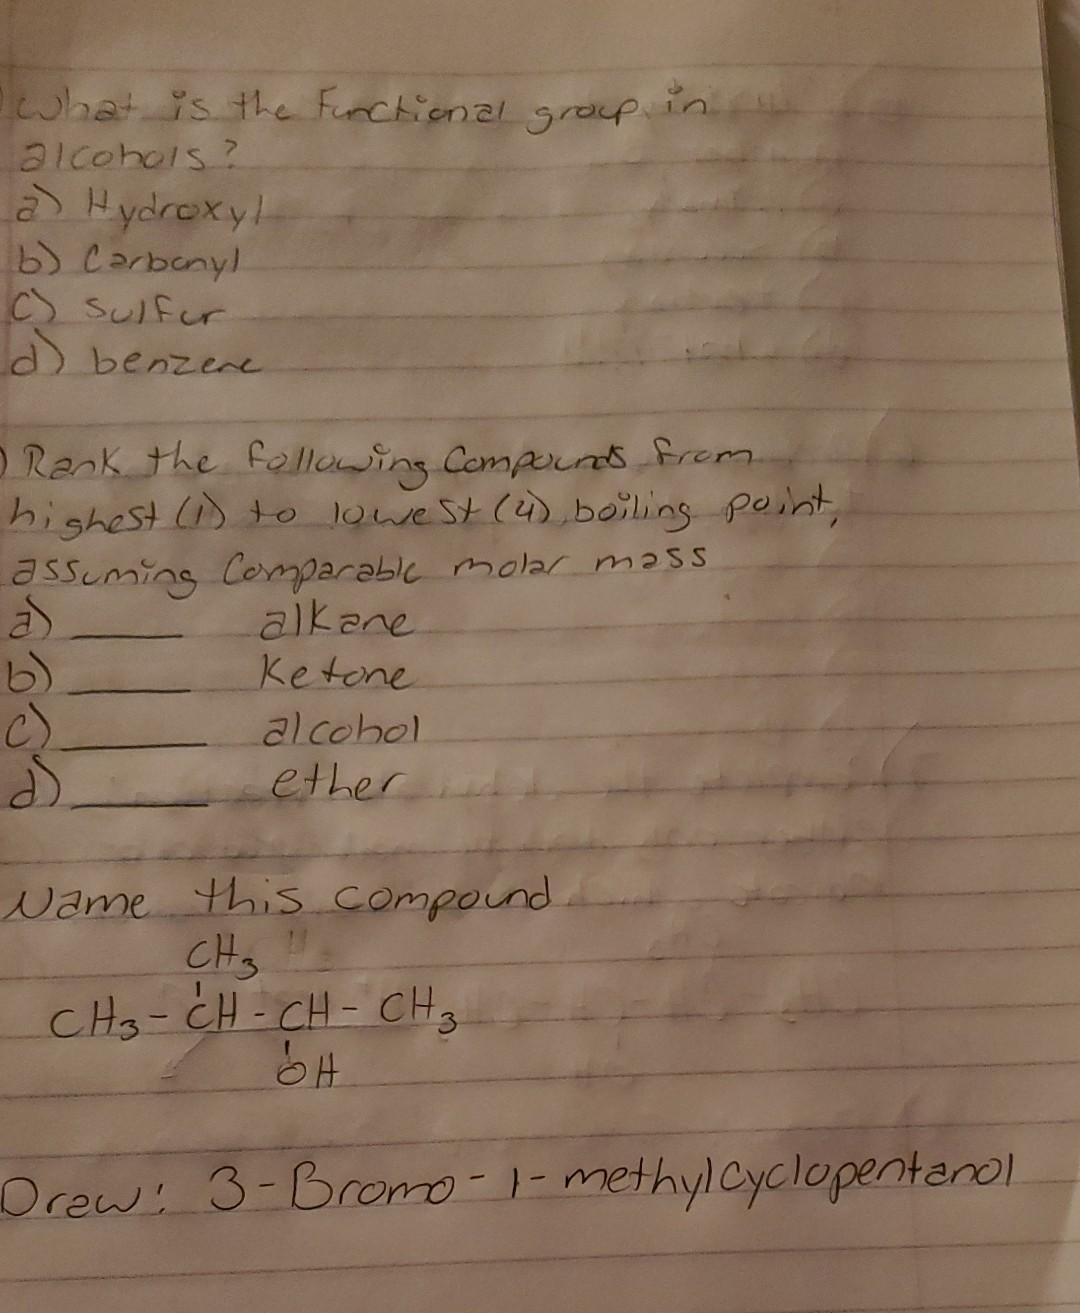 What is the Functional group in
alcohols?
a) Hydroxyl
b) Carbonyl
c) Sulfur
d) benzene
) Rank the following Compounds from
highest (1) to lowest (4) boiling point,
assuming Comparable molar mass
a) ______ alkane
b) ______ Ketone
c) ______ alcohol
d) ______ ether
Name this compound
CH₃
CH₃-CH-CH-CH₃
OH
Draw: 3-Bromo-1-methylcyclopentanol